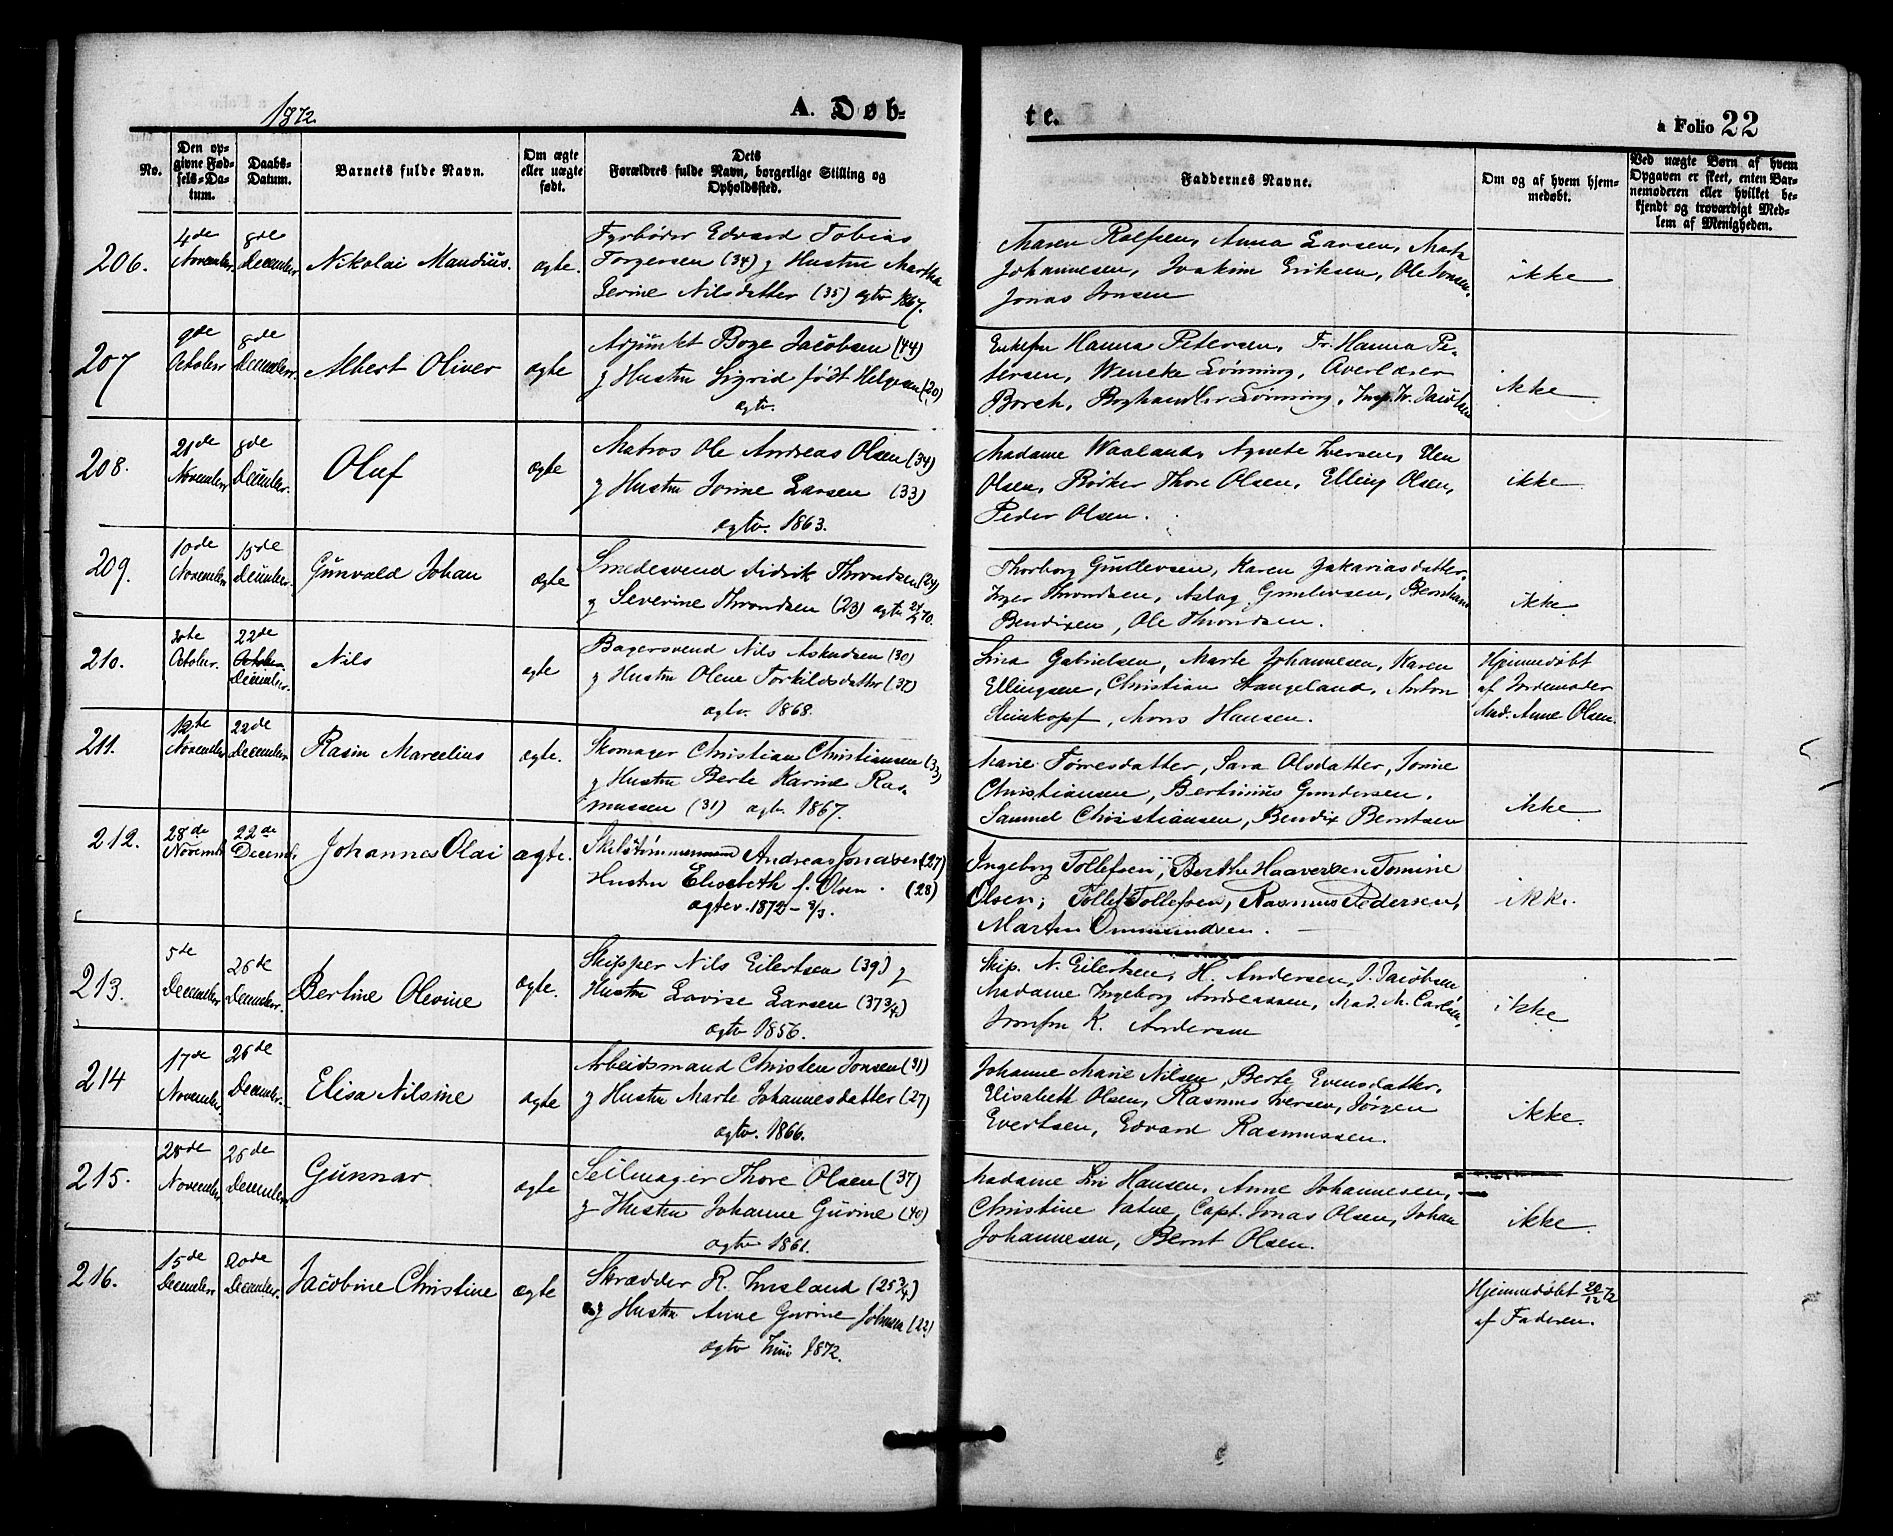 1872.
A. Døb-
te.
a Folio 22
No.
Den op-
givne Fød-
sels-Da-
tum.
Daabs-
Datum.
Barnets fulde Navn.
Om ægte
eller uægte
født.
Dets
Forældres fulde Navn, borgerlige Stilling og
Opholdssted.
Faddernes Navne.
Om og af hvem hjem-
medøbt.
Ved uægte Børn af hvem
Opgaven er skeet, enten Bar-
nemoderen eller hvilket be-
kjendt og troværdigt Med-
lem af Menigheden.
206.
4de
November
8de
December
Nikolai Mandius.
ægte.
Fyrbøder Edvard Tobias
Torgersen (34) g Hustru Martha
Serine Nilsdatter (35) ægtv 1867.
Maren Roefsen, Anna Larsen,
Johannesen, Joakim Eriksen, Ole Jonsen,
Jonas Jonsen
ikke
207
9de
October
8de
December.
Albert Oliver
ægte
Adjunkt Boye Jacobsen (44)
g Hustru Sigrid født Helgesen (30)
ægtv.
Enkefru Hanna Petersen, Fr. Hanna Pe-
tersen, Weneke Lønning, Overlærer
Borch, Boghandler Lønning,
ikke
208.
21de
November
8de
December.
Oluf
ægte
Matros Ole Andreas Olsen (34)
g Hustru Jorine Larsen (33)
ægtv. 1863.
Madame Waaland, Agnete Iversen, Elen
Olsen, Bødker Thore Olsen, Elling Olsen,
Peder Olsen.
ikke
209.
10de
November
15de
December.
Gunvald Johan
ægte
Smedesvend Didrik Throndsen (24)
g Severine Throndsen (23) ægtv 70.
Thorborg Gundersen, Karen Zakariasdatter,
Inger Throndsen, Aslag Gundersen, Bernhard
Bendixen, Ole Throndsen.
ikke
210.
October.
22de
October
December.
Nils
ægte
Bagersvend Nils Askildsen (30)
g Hustru Olene Torkildsdatter (37)
ægtv. 1868.
Lina Gabrielsen, Marte Johannesen, Karen
Ellingsen, Christian Stangeland, Anton
Steinkopf, Mons Hansen.
Hjemmedøbt
af Jordemoder
Mad. Anne Olsen.
211.
12te
November
22de
December
Rasin Marcelius
ægte.
Skomager Christian Christiansen (33)
g Hustru Berte Karine Ras-
mussen (31) ægtv. 1867.
Marie Tørresdatter, Sara Olsdatter, Jorine
Christiansen, Bertinius Gundersen,
Samuel Christiansen, Bendix Berntsen
ikke
212.
28de
Novemb.
22de
Decemb.
Johannes Olai
ægte.
Skibstømmermand Andreas Jonassen (27)
Hustru Elisabeth f. Olsen. (28)
ægtev. 1872 - 3/3.
Ingeborg Tollefsen, Berthe Haaversen, Tomine
Olsen, Tollef Tollefsen, Rasmus Pedersen,
Martin Ommundsen.
ikke.
213.
5de
December
26de
December.
Bertine Olevine
ægte.
Skipper Nils Eilertsen (39) g
Hustru Lovise Larsen (37 3/4)
ægtv 1856.
Skip. N. Eilertsen, H. Andersen, J. Jacobsen
Madame Ingeborg Andreassen, Mad. M. Carlsen,
Jomfru K. Andersen
ikke.
214
17de
November
26de
December.
Elisa Nilsine
ægte
Arbeidsmand Christen Jonsen (31)
g Hustru Marte Johannesdatter (27)
ægtv. 1866.
Johanne Marie Nilsen, Berte Evensdatter,
Elisabeth Olsen, Rasmus Iversen, Jørgen
Evertsen, Edvard Rasmussen.
ikke.
215.
28de
November
26de
December
Gunnar
ægte
Seilmager Thore Olsen (37)
g Hustru Johanne Gurine (40)
ægtv 1861.
Madame Hansen, Anne Johannesen,
Christine Vatne, Capt. Jonas Olsen, Johan
Johannesen, Bernt Olsen.
ikke.
216.
15de
December
20de
December.
Jacobine Christine
ægte
Skrædder R. Imsland (25 3/4)
og Hustru Anne Gurine Johnsen (22)
ægtv Juni 1872.
Hjemmedøbt 20/12 72
af Faderen.